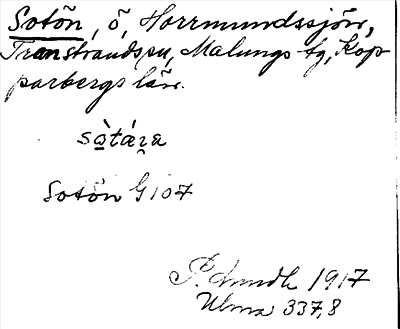 Sotön, ö, Horrmundssjön,
Transtrands sn, Malungs tg, Kop
parbergs län.
sòtáꞃa
Sotön G107
P. Lundh 1917
Ulma 337,8